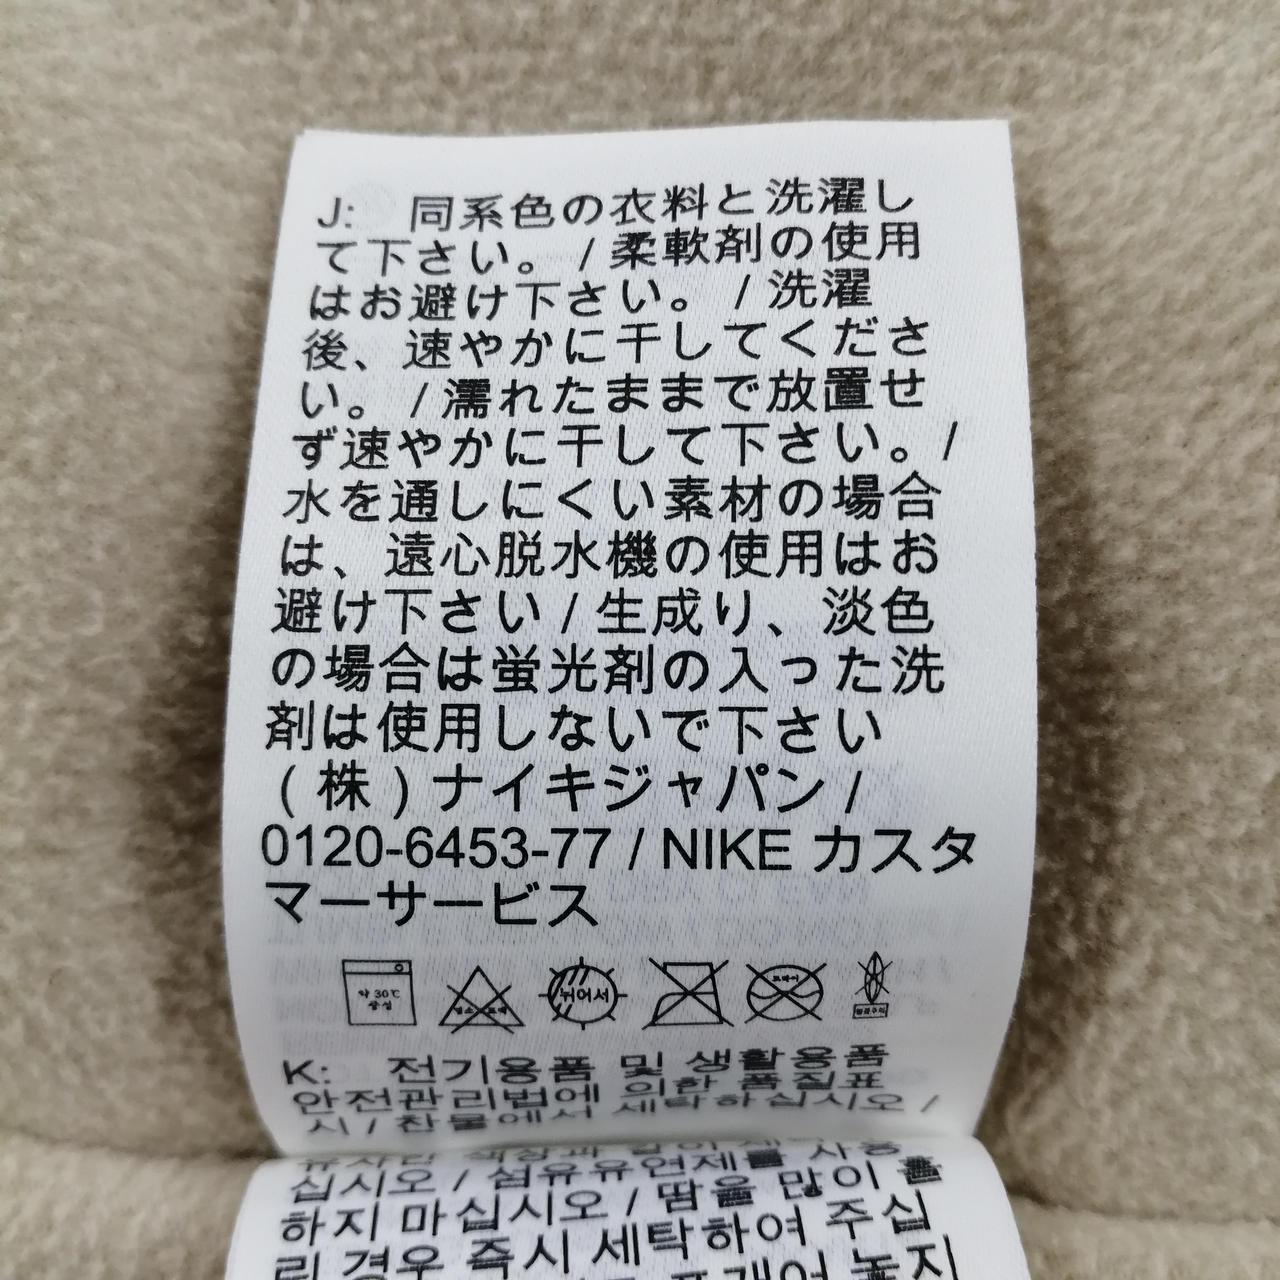 J: 同系色の衣料と洗濯し
て下さい。 / 柔軟剤の使用
はお避け下さい。 / 洗濯
後、速やかに干してくださ
い。 / 濡れたままで放置せ
ず速やかに干して下さい。 /
水を通しにくい素材の場合
は、遠心脱水機の使用はお
避け下さい / 生成り、淡色
の場合は蛍光剤の入った洗
剤は使用しないで下さい
(株)ナイキジャパン /
0120-6453-77 / NIKE カスタ
マーサービス
약 30℃
중성
뉘어서
드라이
K: 전기용품 및 생활용품
안전관리법에 의한 품질표
시 / 찬물에서 세탁하십시오 /
유사한 색상과 같이
십시오 / 섬유유연제를 사용
하지 마십시오 / 땀을 많이 흘
린 경우 즉시 세탁하여 주십